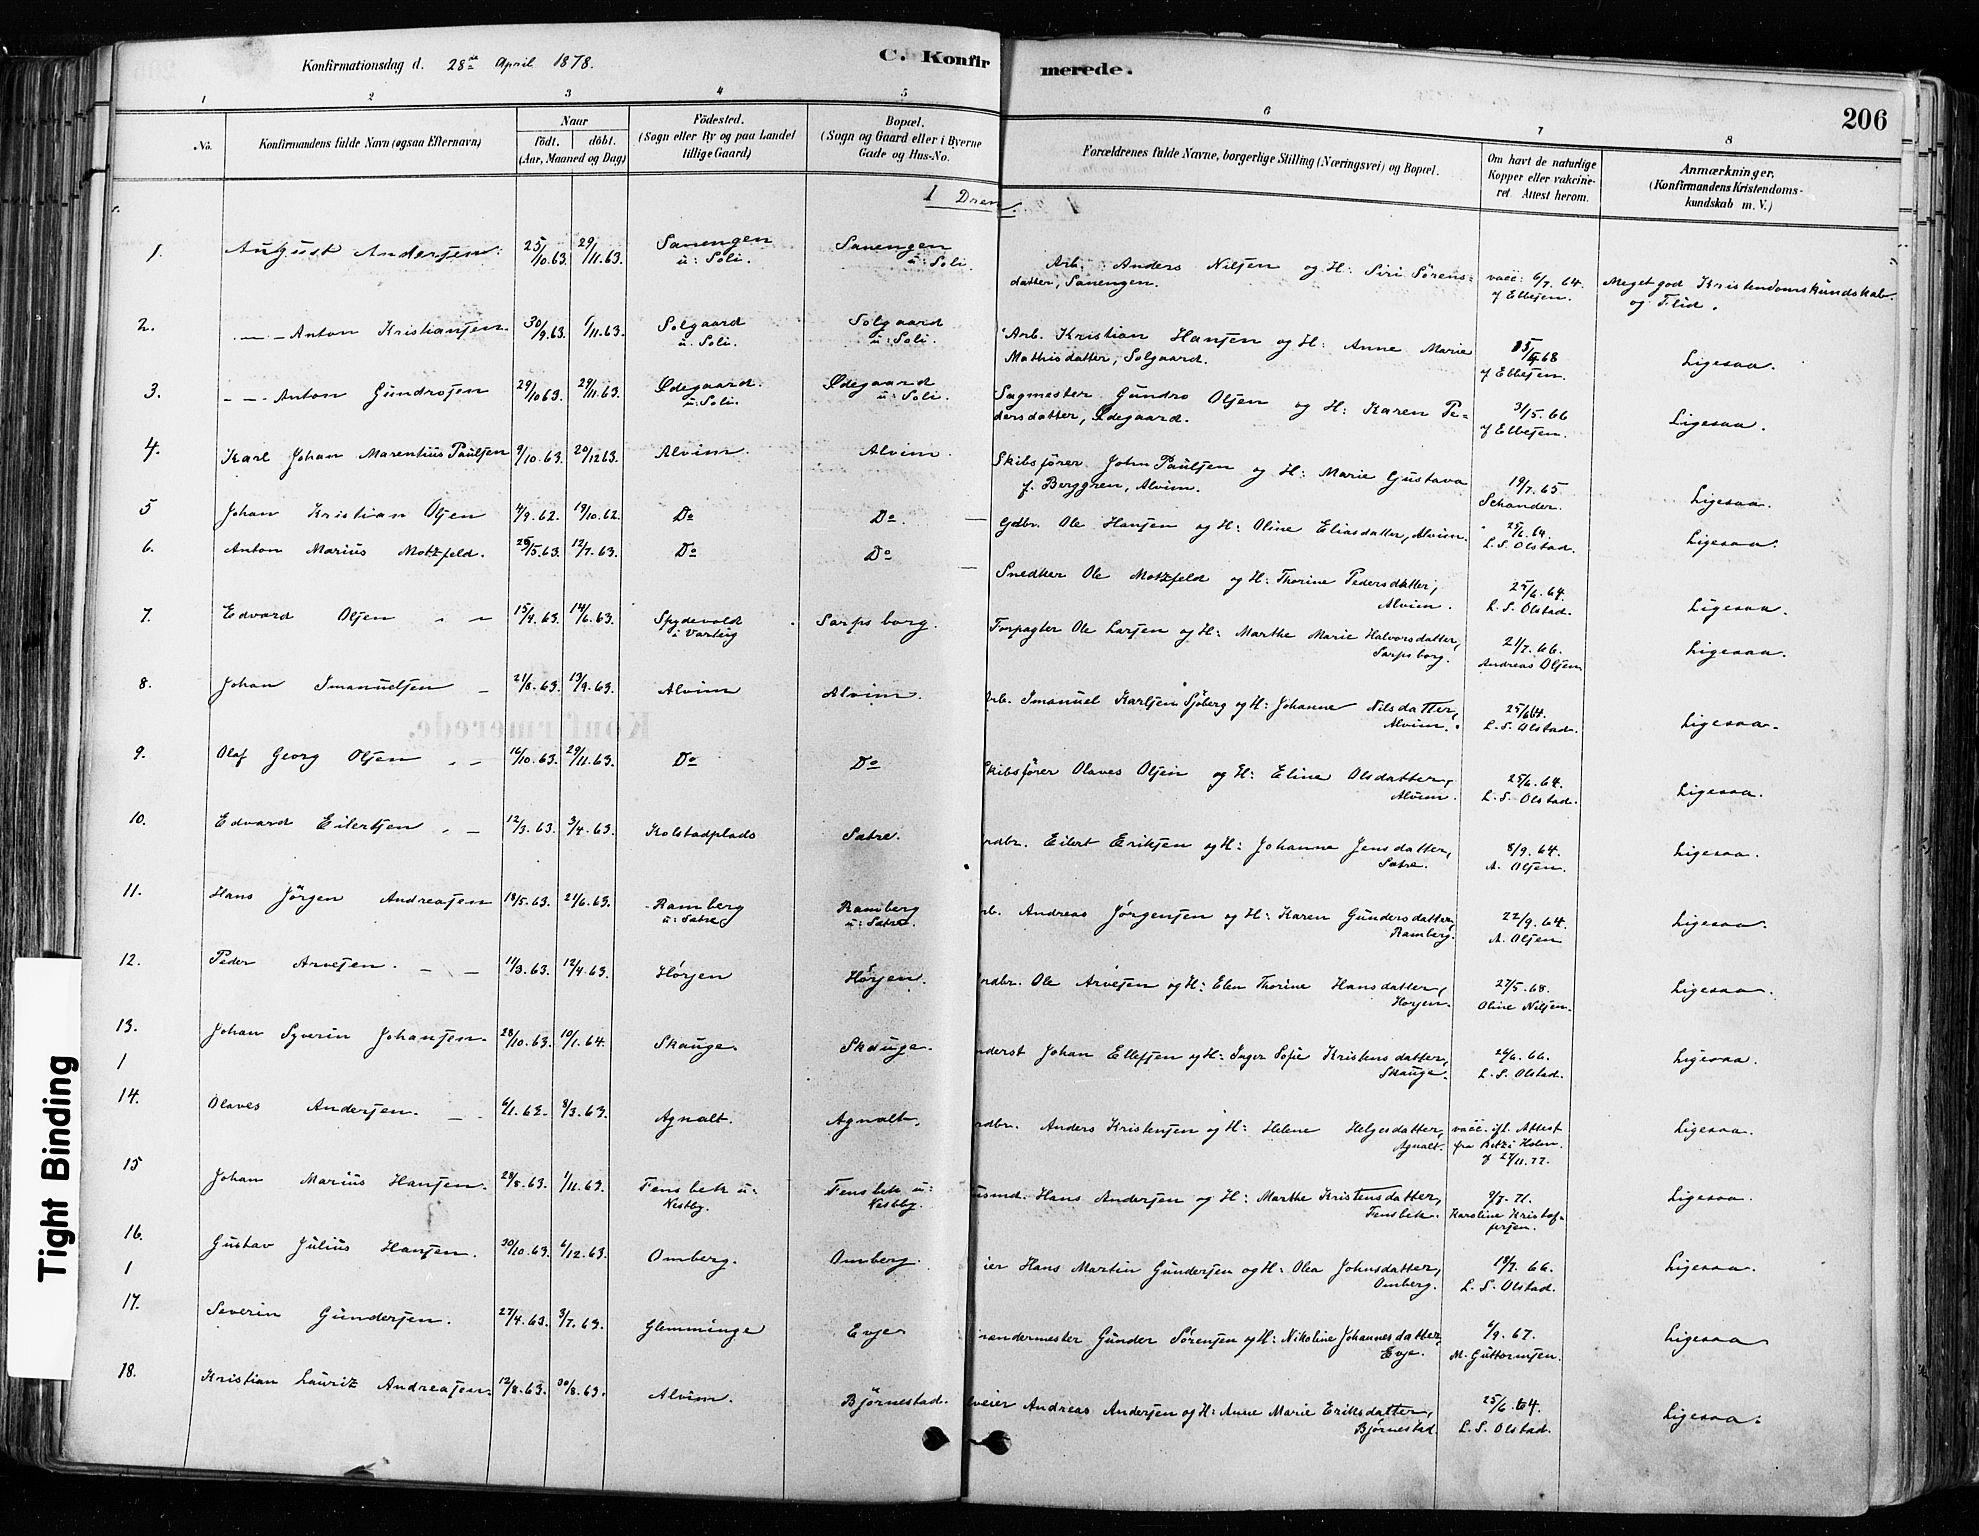 Konfirmationsdag d. 28de April 1878.
C. Konfirmerede.
206
1 2 3 4 5 6 7 8
No. Konfirmandens fulde Navn (ogsaa Efternavn) Naar født. døbt. (Aar, Maaned og Dag) Fødested. (Sogn eller By og paa Landet tillige Gaard) Bopæl. (Sogn og Gaard eller i Byerne Gade og Hus-No. Forældrenes fulde Navne, borgerlige Stilling (Næringsvei) og Bopæl. Om havt de naturlige Kopper eller vakcineret Attest herom. Anmærkninger. (Konfirmandens Kristendomskundskab m. V.)
1 Dreng.
1. August Andersen. 25/10.63. 29/11.63. Sanengen u: Soli. Sanengen u: Soli. Arb. Anders Nilsen og H: Siri Sørens-
datter, Sanengen. vacc: 6/7.64. f Ebbesen. Meget god Kristendomskundskab og Flid.
2. Anton Kristiansen. 30/9.63. 1/11.63. Solgaard u: Soli. Solgaard u: Soli. Arb. Kristian Hansen og H: Anne Marie
Mathisdatter, Solgaard. f Ebbesen. Ligesaa.
3. Anton Gundrosen 29/10.63. 29/11.63. Ødegaard. u: Soli. Ødegaard u: Soli. Sagmester Gundro Olsen og H: Karen Pe-
dersdatter, Ødegaard. 31/5.66 f Ebbesen. Ligesaa.
4. Karl Johan Marentius Paulsen 9/10.63. 20/12.63. Alvim. Alvim. Skibsfører John Paulsen og H: Marie Gustava
f. Berggren, Alvim. 19/7.65 Schander. Ligesaa.
5 Johan Kristian Olsen 4/9.62. 19/10.62. Do Do. Gdbr. Ole Hansen og H: Oline Eliasdatter, Alvim. 25/6.64. L. S. Olstad. Ligesaa.
6. Anton Marius Motzfeld. 25/5.63. 12/7.63. Do Do Snedker Ole Motzfeld og H: Thorine Pedersdatter,
Alvim. 25/6.64. L. S. Olstad. Ligesaa.
7. Edvard Olsen 15/4.63. 14/6.63. Spydevold i Varteig Sarpsborg. Forpagter Ole Larsen og H: Marthe Marie Halvorsdatter,
Sarpsborg. 21/7.66. Andreas Olsen Ligesaa.
8. Johan Imanuelsen 21/8.63. 13/9.63. Alvim Alvim. Arb. Imanuel Karlsen Sjøberg og H: Johanne Nilsdatter,
Alvim. 25/6.64. L. S. Olstad. Ligesaa.
9. Olaf Georg Olsen 16/10.63. 29/11.63. Do Do Skibsfører Olaves Olsen og H: Eline Olsdatter,
Alvim. 25/6.64. L. S. Olstad. Ligesaa.
10. Edvard Eilertsen 12/3.63. 3/4.63. Kolstadplads Satre. rdbr. Eilert Eriksen og H: Johanne Jensdatter,
Satre. 8/9.64. A. Olsen. Ligesaa.
11. Hans Jörgen Andreasen 19/5.63. 21/6.63. Ramberg u: Satre Ramberg u: Satre. rb. Andreas Jørgensen og H: Karen Gundersdatter,
Ramberg. 22/9.64. A. Olsen Ligesaa.
12. Peder Arvesen. 11/3.63. 12/4.63. Hørsen Hørsen. rdbr. Ole Arvesen og H: Elen Thorine Hansdatter,
Horsen. 27/5.68. Oline Nilsen. Ligesaa.
13. Johan Syverin Johansen. 28/10.63. 10/1.64. Skauge. Skauge. nderst Johan Ellefsen og H: Inger Sofie Kristensdatter,
Skauge. L. S. Olstad. Ligesaa.
1
14. Olaves Andersen. 6/1.63. 8/3.63. Agnalt. Agnalt. rdbr. Anders Kristensen og H: Helene Helgesdatter,
Agnalt. vacc. ifl. Attest fra Holm f 27/11.77. Ligesaa.
15 Johan Marius Hansen. 28/8.63. 1/11.63. Fensbek u: Nestby. Fensbek u: Nestby. usmd. Hans Andersen og H: Marthe Kristensdatter,
Fensbek. 9/7.71. Karoline Kristof-
fersen. Ligesaa.
16. Gustav Julius Hansen. 30/10.63. 6/12.63. Omberg. Omberg. ier Hans Martin Gundersen og H: Olea Johnsdatter,
Omberg. 18/7.66. L. S. Olstad. Ligesaa.
1
17. Severin Gundersen. 27/4.63. 3/7.63. Glemminge Evje randermester Gunder Sörensen og H: Nikoline Johannesdatter,
Evje. 6/9.67. M. Guttormsen. Ligesaa
18. Kristian Lauritz Andreasen. 12/8.63. 30/8.63. Alvim. Björnestad. lveier Andreas Andersen og H: Anne Marie Eriksdatter,
Bjørnestad. 25/6.64. L. S. Olstad. Ligesaa.
Tight Binding